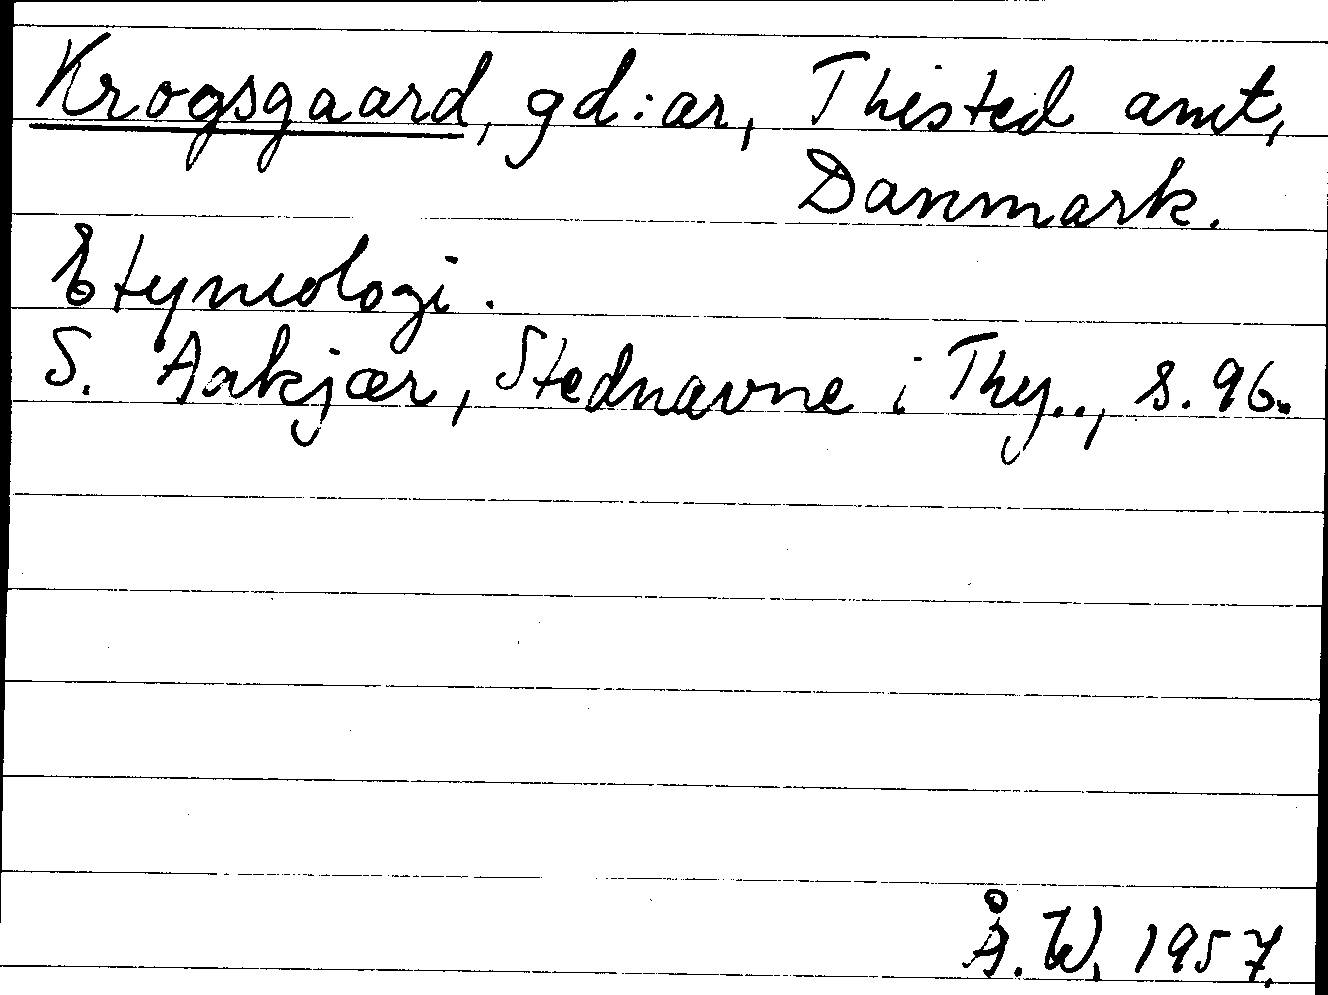 Krogsgaard, gd:ar, Thisted amt,
Danmark.
Etymologi.
S. Aakjær, Stednavne i Thy.., s. 96.
Å.W. 1957.